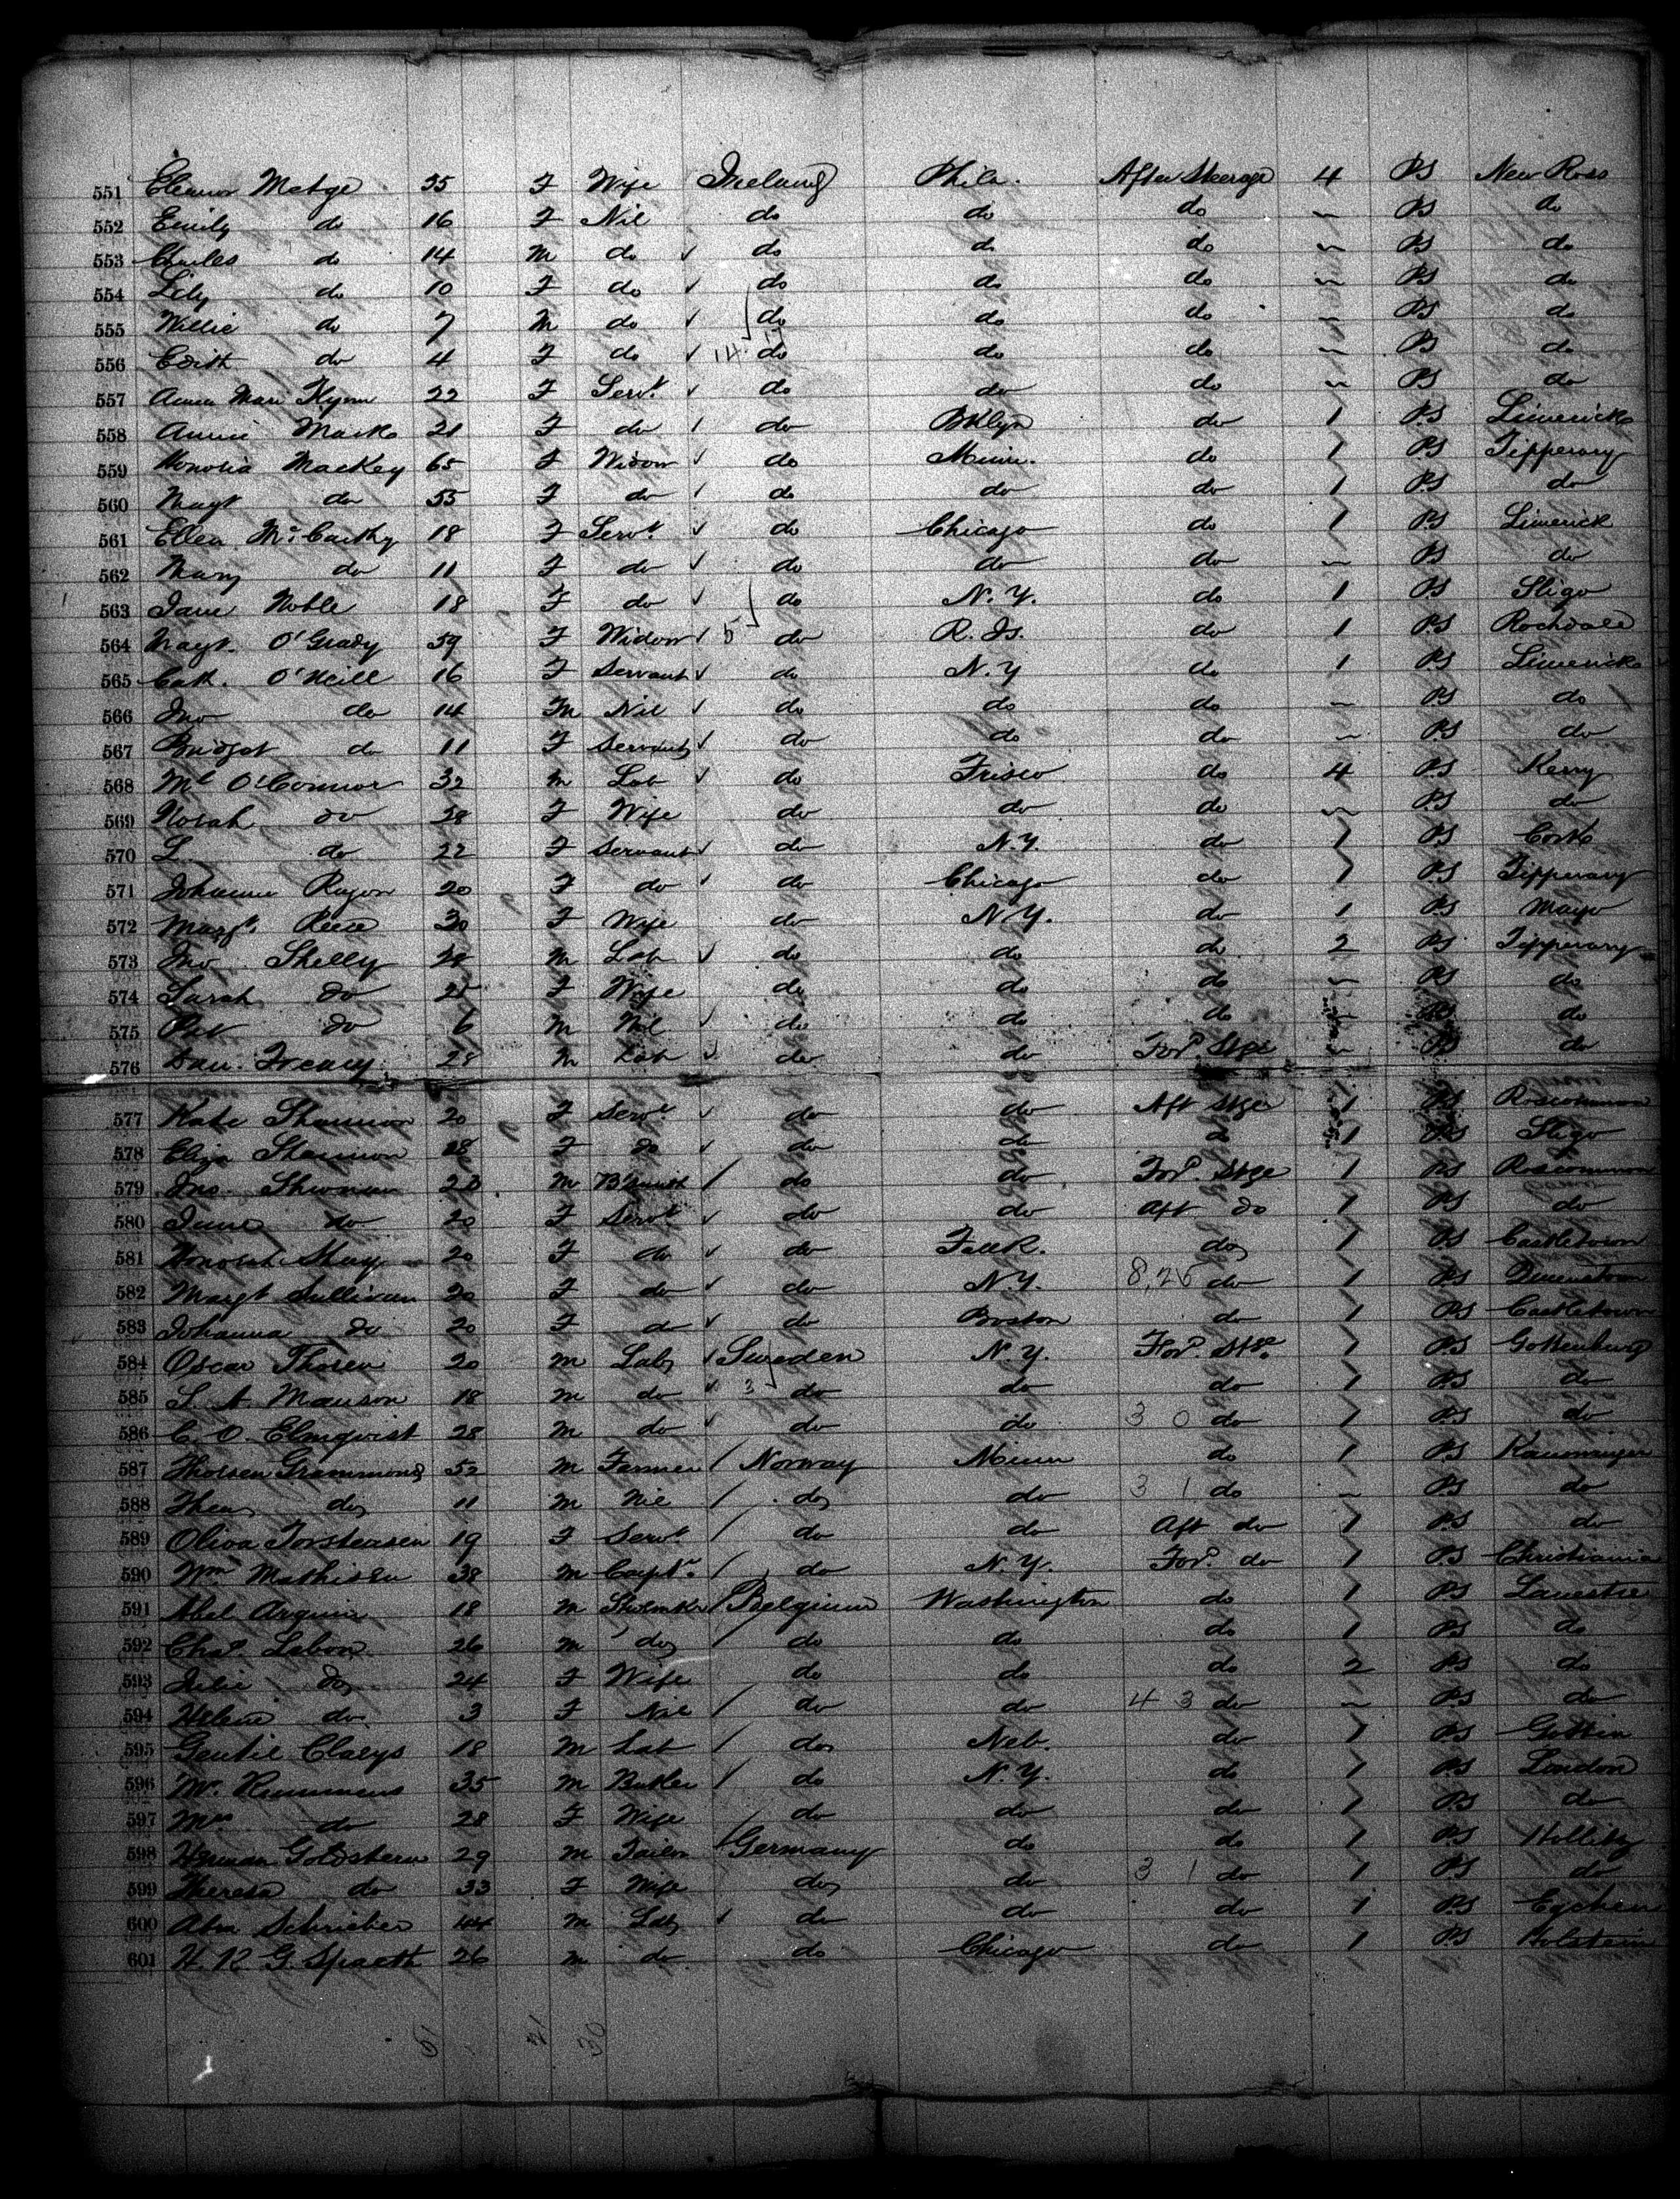 551 Eleanor Metge 35 F Wife Ireland Phila. After Steerage 4 PS New Ross
552 Emily do 16 F Nil do do do " PS do
553 Charles do 14 M do do do do " PS do
554 Lily do 10 F do do do do " PS do
555 Willie do 7 M do do do do " PS do
556 Edith do 4 F do 14 do do do " PS do
557 Mary Flynn 22 F Servt do do do " PS do
558 Annie Marks 21 F do do Bklyn do 1 PS Limerick
559 Honoria MacKey 65 F Widow do Minn. do 1 PS Tipperary
560 Magt do 55 F do do do do 1 PS do
561 Ellen McCarthy 18 F Servt do Chicago do 1 PS Limerick
562 Mary do 11 F do do do do " PS do
563 Jane Noble 18 F do do N.Y. do 1 PS Sligo
564 Magt. O'Grady 59 F Widow 5 do R. Is. do 1 PS Rochdale
565 Cath. O'Neill 16 F Servant do N.Y do 1 PS Limerick
566 Jno do 14 M Nil do do do " PS do
567 Bridget do 11 F Servant do do do " PS do
568 Ml O'Connor 32 M Lab do Frisco do 4 PS Kerry
569 Norah do 28 F Wife do do do " PS do
570 L do 22 F Servant do N.Y. do 1 PS Cork
571 Johanna 20 F do do Chicago do 1 PS Tipperary
572 Margt. Reece 30 F Wife do N.Y. do 1 PS Mayo
573 Jno. Shelly 28 M Lab do do do 2 PS Tipperary
574 Sarah do 25 F Wife do do do " PS do
575 Pat do 6 M Nil do do do " PS do
576 Dan. Treacy 28 M Lab do do For'd. Stge " PS do
577 Kate Shannon 20 F Servt do do Aft Stge 1 PS Roscommon
578 Eliza Shannon 28 F do do do do 1 PS Sligo
579 Jno. 23 M B'Smith do do For'd. Stge 1 PS Roscommon
580 do 20 F Servt do do Aft do 1 PS do
581 Honorah Shay 20 F do do do 1 PS Castletown
582 Margt Sullivan 20 F do do N.Y. 8,25 do 1 PS Queenstown
583 Johanna do 20 F do do Boston do 1 PS Castletown
584 Oscar Thoren 20 M Lab Sweden N.Y. For'd. Stge 1 PS Gothenburg
585 S. A Manson 18 M do 3 do do do 1 PS do
586 C. O. Elmqvist 28 M do do do 3 0 do 1 PS do
587 Grammond 52 M Farmer Norway Minn do 1 PS
588 do 11 M Nil do do 3 1 do " PS do
589 Oliva Torstensen 19 F Servt do do Aft do 1 PS do
590 Wm Mathisen 38 M Capt. do N.Y. For'd. do 1 PS Christiania
591 Abel 18 M Belgium Washington do 1 PS
592 Chas. Lebon 26 M do do do do 1 PS do
593 Julie do 24 F Wife do do do 2 PS do
594 Helene do 3 F Nil do do 4 3 do " PS do
595 Gentil Claeys 18 M Lab do Neb. do 1 PS
596 Mr. Rummens 35 M Butler do N.Y. do 1 PS London
597 Mrs do 28 F Wife do do do 1 PS do
598 Herman Goldstern 29 M Tailor Germany do do 1 PS
599 Theresa do 33 F Wife do do 3 1 do 1 PS do
600 Abm Schrieber 44 M Lab do do do 1 PS
601 H. R. G. Spaeth 26 M do do Chicago do 1 PS Holstein
51 21 30